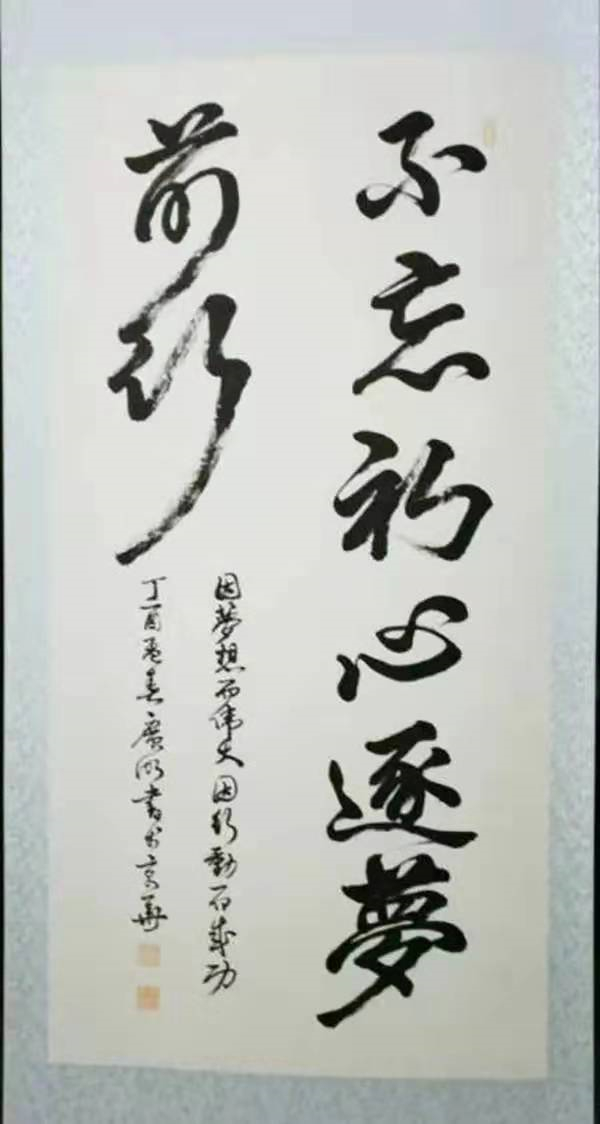 不忘初心逐夢
前行
因夢想而偉大因行動而成功
丁酉孟春廣湖書於京華